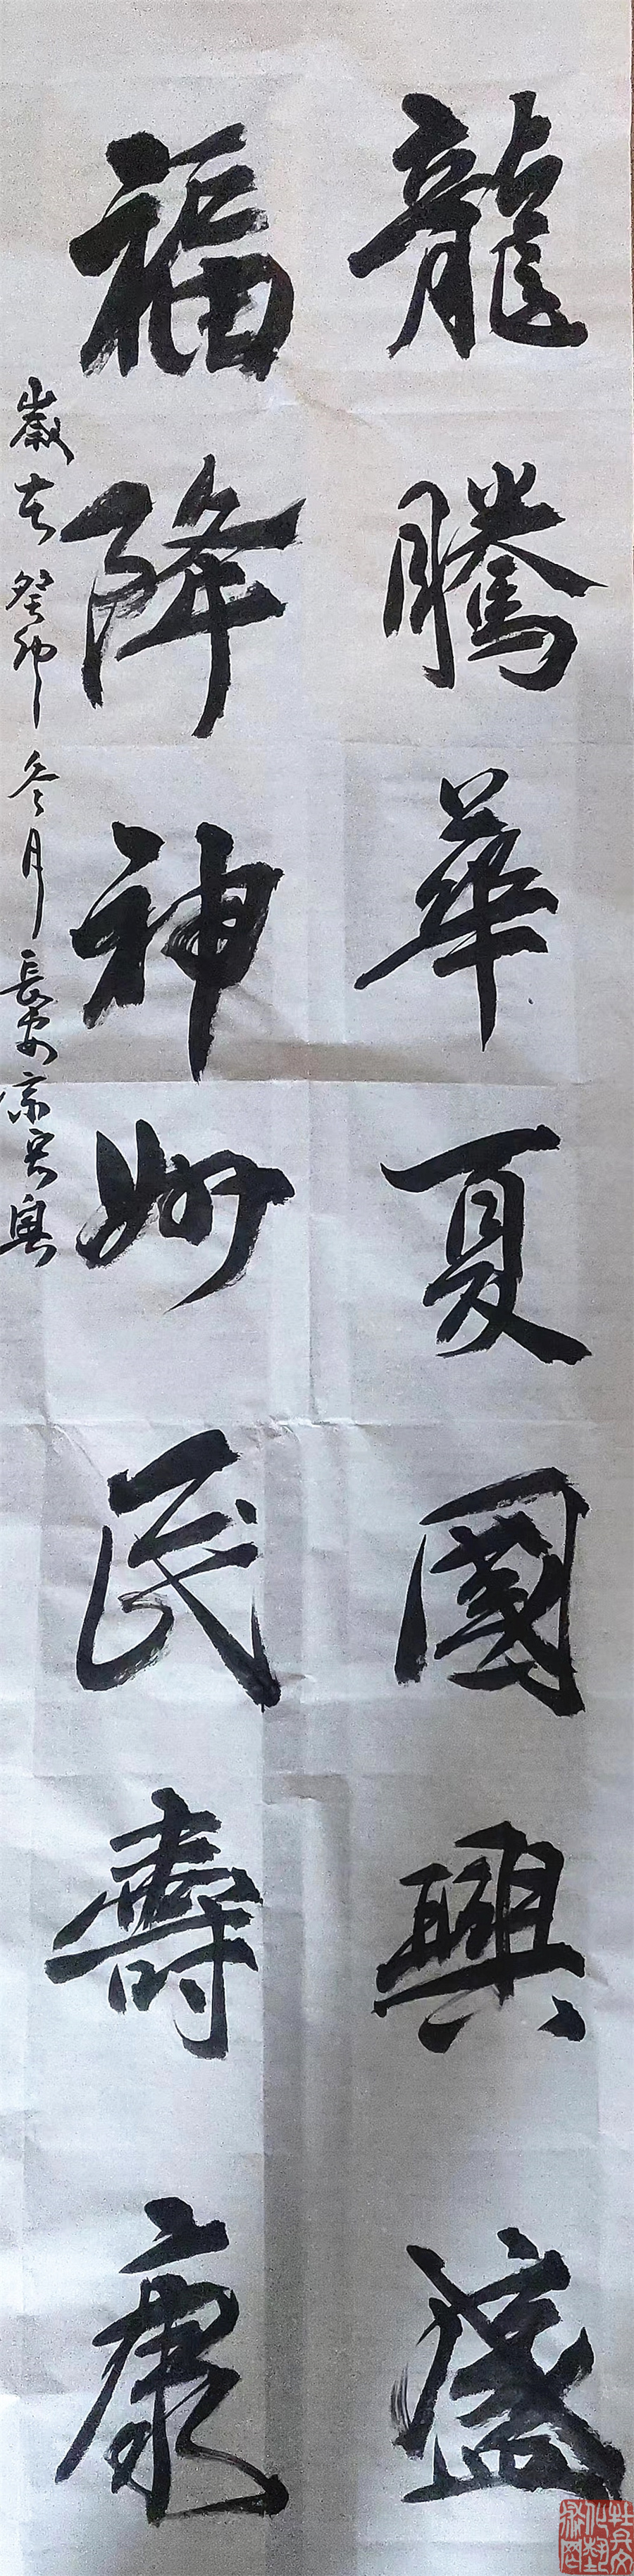 龍騰華夏國興盛
福降神州民壽康
歲在癸卯冬月長安宗宏奥